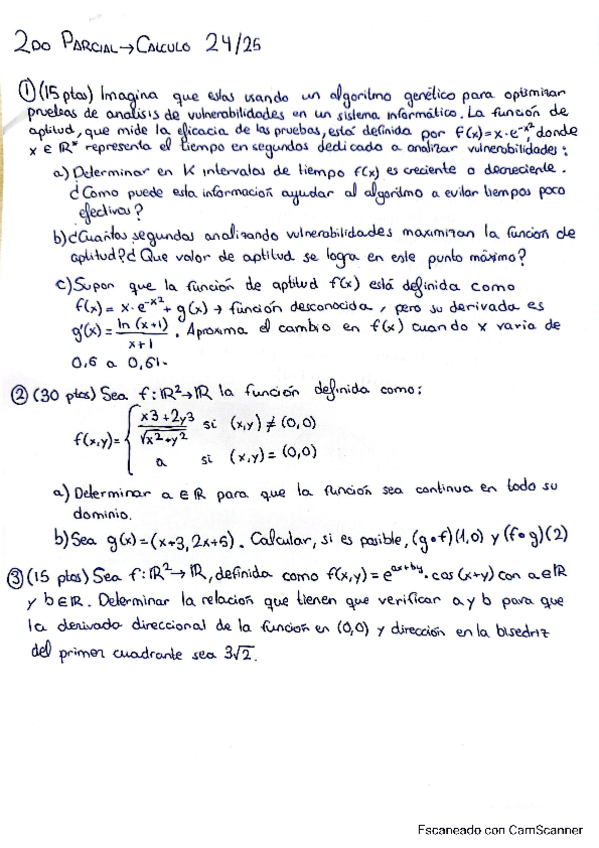 2DO PARCIAL → CALCULO 24/25
① (15 ptos) Imagina que estas usando un algoritmo genético para optimizar
pruebas de analisis de vulnerabilidades en un sistema informático. La función de
aptitud, que mide la eficacia de las pruebas, está definida por f(x)=x·e^-x², donde
x ∈ ℝ⁺ representa el tiempo en segundos dedicado a analizar vulnerabilidades:
a) Determinar en K intervalos de tiempo f(x) es creciente o decreciente.
¿Como puede esta información ayudar al algoritmo a evitar tiempos poco
efectivos?
b) ¿Cuantos segundos analizando vulnerabilidades maximizan la función de
aptitud? ¿Que valor de aptitud se logra en este punto máximo?
c) Supon que la función de aptitud f(x) está definida como
f(x) = x·e^-x² + g(x) → función desconocida, pero su derivada es
g'(x) = ln(x+1)/(x+1). Aproxima el cambio en f(x) cuando x varia de
0,6 a 0,61.
② (30 ptos) Sea f: ℝ² → ℝ la función definida como:
f(x,y) = { x3+2y3/√x²+y² si (x,y) ≠ (0,0)
a si (x,y) = (0,0)
a) Determinar a ∈ ℝ para que la función sea continua en todo su
dominio.
b) Sea g(x) = (x+3, 2x+5). Calcular, si es posible, (g∘f)(1,0) y (f∘g)(2)
③ (15 ptos) Sea f: ℝ² → ℝ, definida como f(x,y) = e^ax+by · cos(x+y) con a ∈ ℝ
y b ∈ ℝ. Determinar la relacion que tienen que verificar a y b para que
la derivada direccional de la función en (0,0) y dirección en la bisectriz
del primer cuadrante sea 3√2.
Escaneado con CamScanner